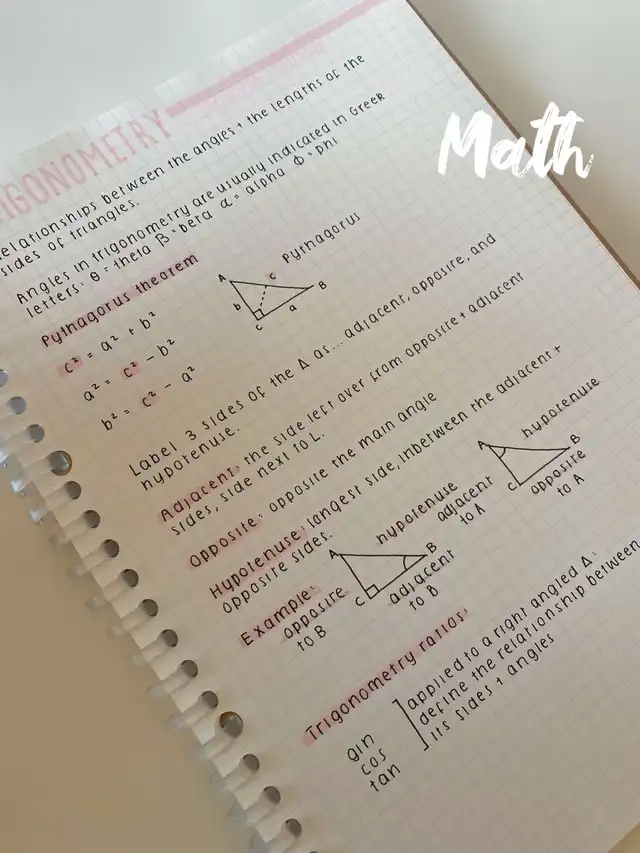 Math
TRIGONOMETRY
relationships between the angles + the lengths of the
sides of triangles.
Angles in trigonometry are usually indicated in Greek
letters: θ = theta β = beta α = alpha Φ = phi
Pythagorus theorem
c² = a² + b²
a² = c² - b²
b² = c² - a²
A
c
Pythagorus
b
B
a
C
Label 3 sides of the Δ as... adjacent, opposite, and
hypotenuse.
Adjacent: the side left over from opposite + adjacent
sides, side next to L.
Opposite: opposite the main angle
Hypotenuse: longest side, inbetween the adjacent +
opposite sides.
hypotenuse
A
B
C
adjacent
to A
opposite
to A
Example:
hypotenuse
A
B
C
opposite
to B
adjacent
to B
Trigonometry ratios:
sin
cos
tan
applied to a right angled Δ:
define the relationship between
its sides + angles